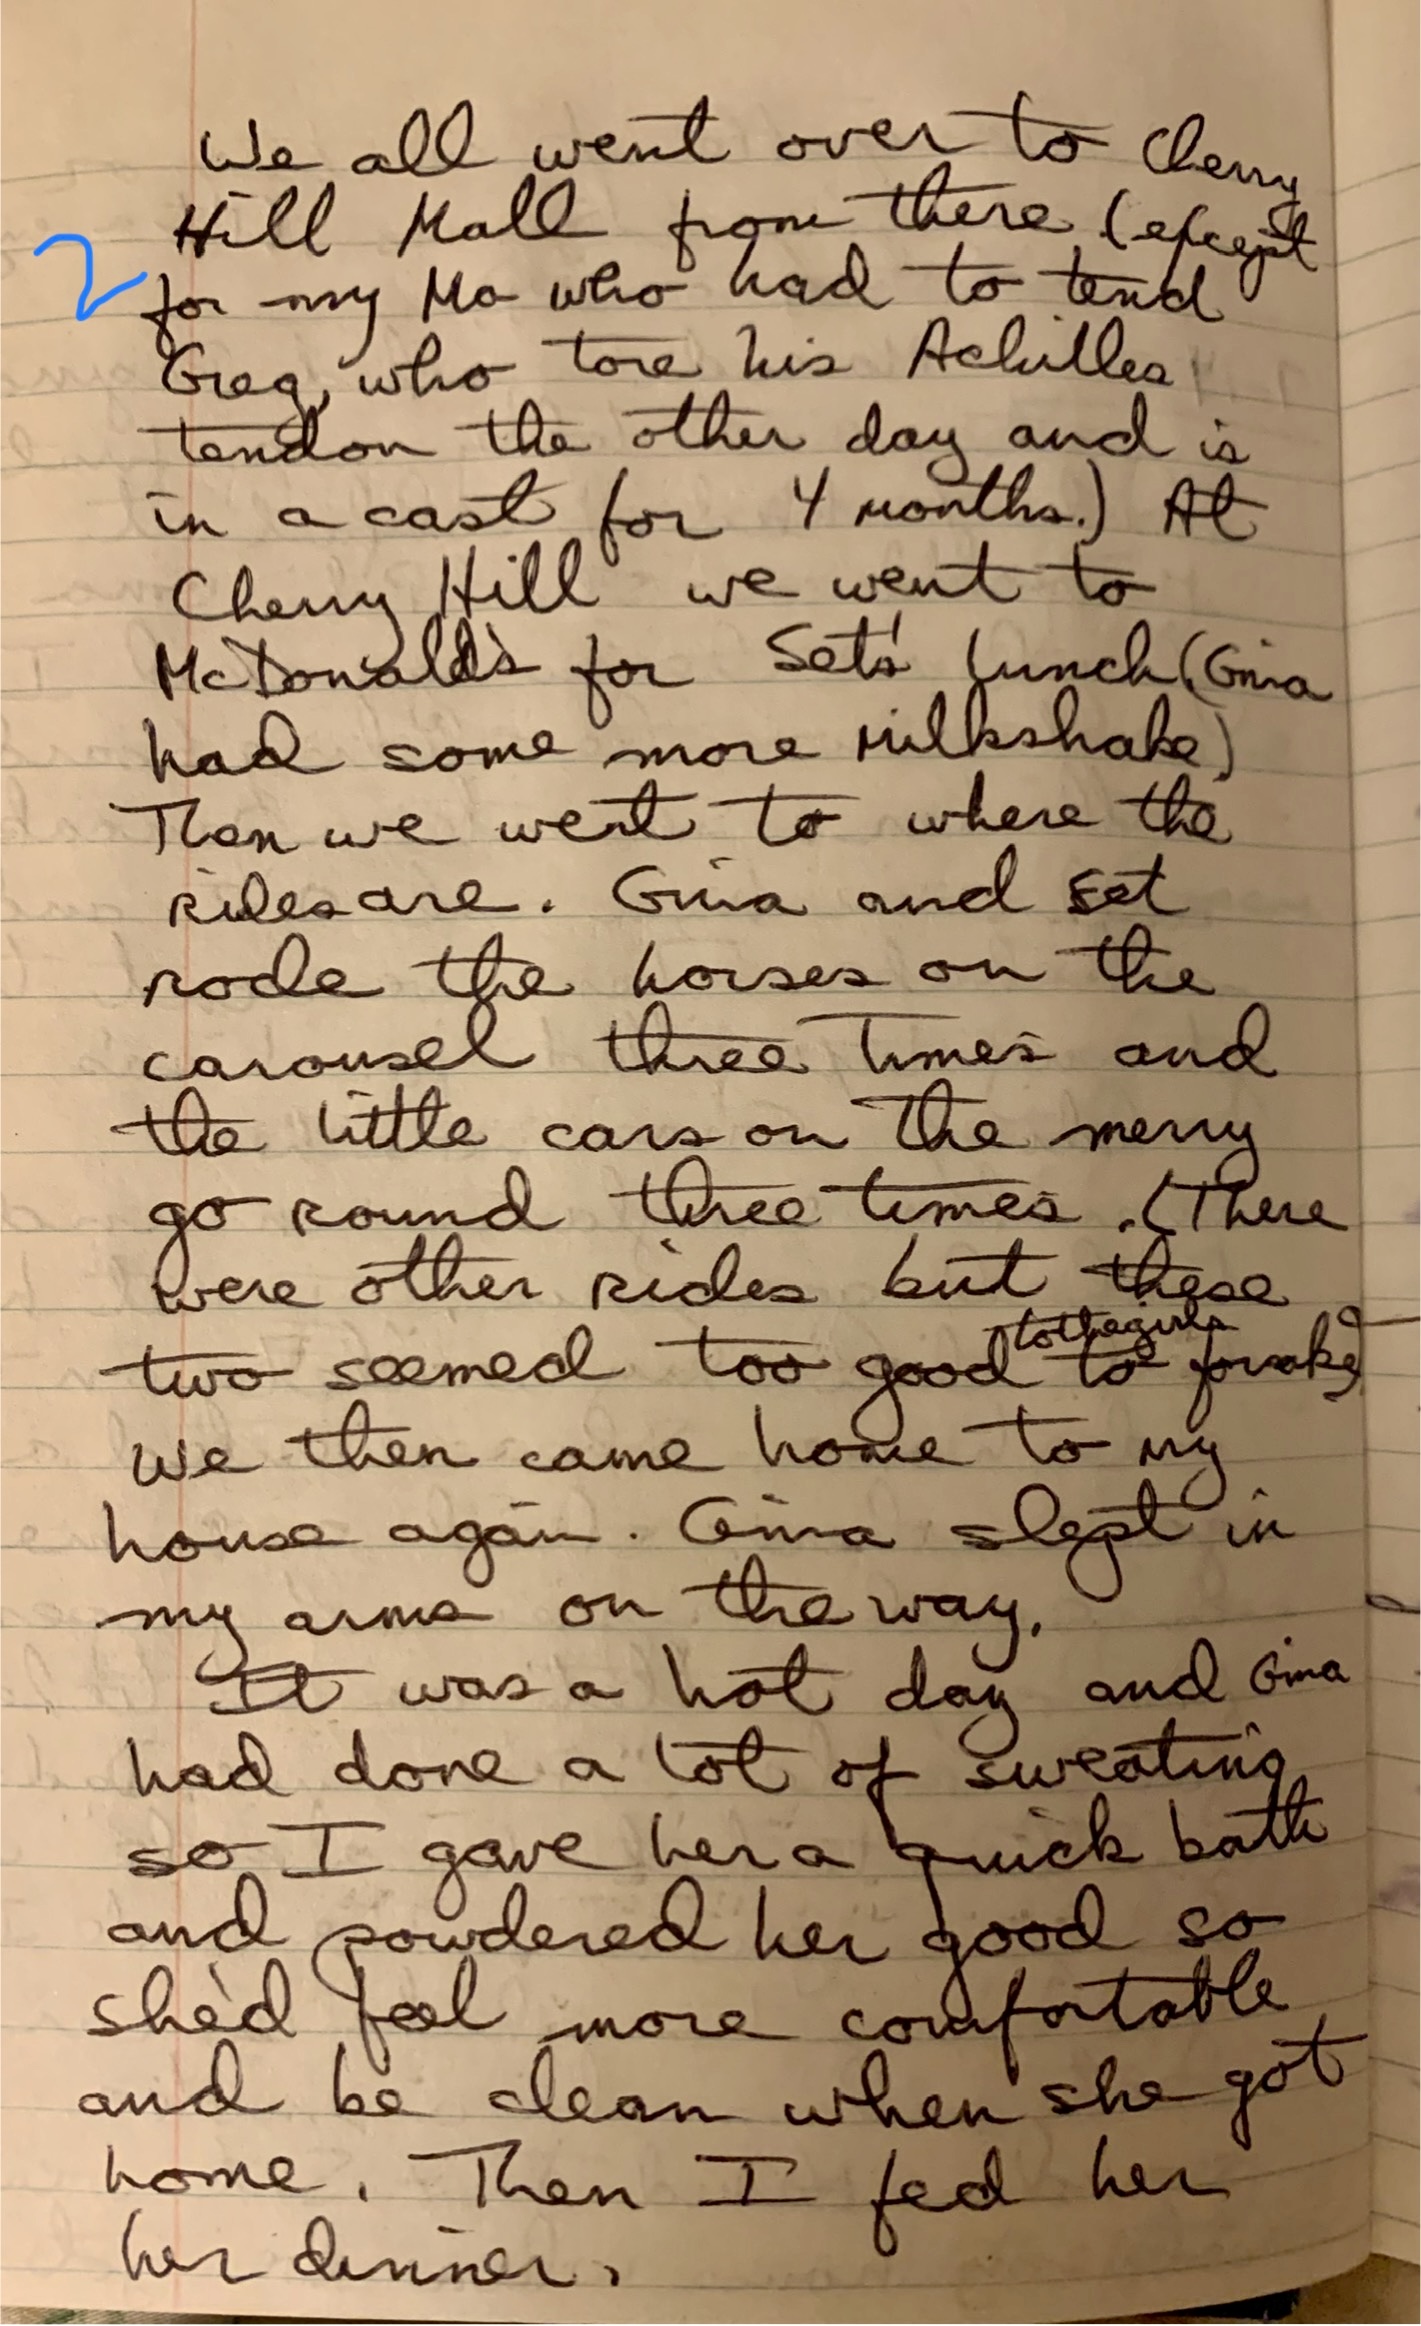 We all went over to Cherry
Hill Mall from there (except
2
for my Mo who had to tend
Greg, who tore his Achilles
tendon the other day and is
in a cast for 4 months.) At
Cherry Hill we went to
McDonald's for Set's lunch (Gina
had some more milkshake)
Then we went to where the
rides are. Gina and Set
rode the horses on the
carousel three times and
the little cars on the merry
go round three times. (There
were other rides but these
to the girls
two seemed too good to forsake)
We then came home to my
house again. Gina slept in
my arms on the way.
It was a hot day and Gina
had done a lot of sweating
so I gave her a quick bath
and powdered her good so
she'd feel more comfortable
and be clean when she got
home. Then I fed her
her dinner.